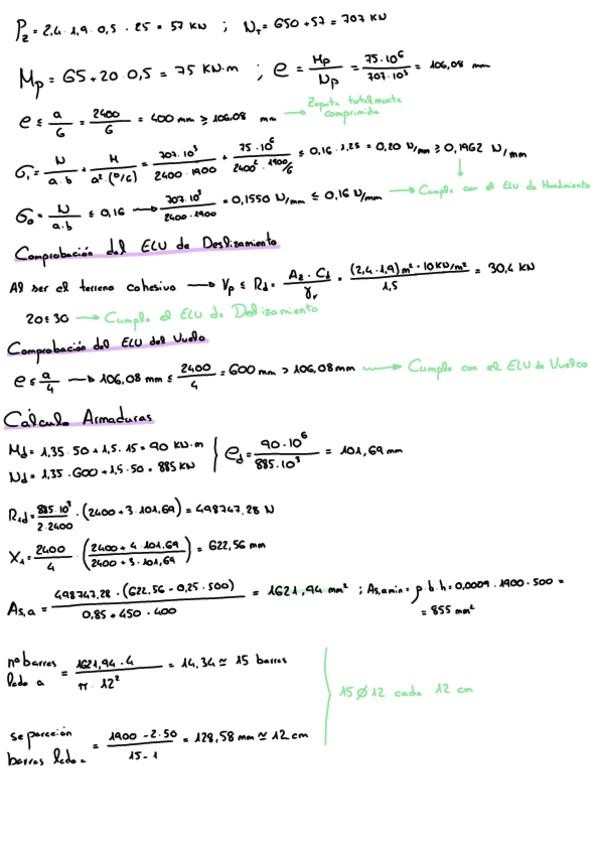 P₂ = 2,4 · 1,9 · 0,5 · 25 = 57 kN ; N_T = 650 + 57 = 707 kN
M_p = 65 + 20 · 0,5 = 75 kN·m ; e = M_p / N_p = 75·10⁶ / 707·10³ = 106,08 mm
e ≤ a/6 = 2400/6 = 400 mm ≥ 106,08 mm → Zapata totalmente comprimida
σ₁ = N/(a·b) + M/(a²·(b/6)) = 707·10³/(2400·1900) + 75·10⁶/(2400²·1900/6) ≤ 0,16·1,25 = 0,20 N/mm ≥ 0,1962 N/mm
σ₀ = N/(a·b) ≤ 0,16 → 707·10³/(2400·1900) = 0,1550 N/mm ≤ 0,16 N/mm → Cumple con el ELU de Hundimiento
Comprobación del ELU de Deslizamiento
Al ser el terreno cohesivo → V_p ≤ R_d = (A₂·C_d)/γ_r = (2,4·1,9)m²·10kN/m² / 1,5 = 30,4 kN
20 ≤ 30 → Cumple el ELU de Delizamiento
Comprobación del ELU del Vuelo
e ≤ a/4 → 106,08 mm ≤ 2400/4 = 600 mm > 106,08 mm → Cumple con el ELU de Vuelco
Cálculo Armaduras
M_d = 1,35 · 50 + 1,5 · 15 = 90 kN·m
N_d = 1,35 · 600 + 1,5 · 50 = 885 kN
e_d = 90·10⁶ / 885·10³ = 101,69 mm
R₁d = 885·10³/(2·2400) · (2400 + 3·101,69) = 498747,28 N
X₁ = 2400/4 · ((2400 + 4·101,69)/(2400 + 3·101,69)) = 622,56 mm
As,a = 498747,28 · (622,56 - 0,25·500) / (0,85·450·400) = 1621,94 mm² ; As,a min = ρ·b·h = 0,0009·1900·500 =
= 855 mm²
nº barras lado a = 1621,94·4 / (π·12²) = 14,34 ≃ 15 barras
15 Ø 12 cada 12 cm
separación barras lado a = (1900 - 2·50)/(15 - 1) = 128,58 mm ≃ 12 cm